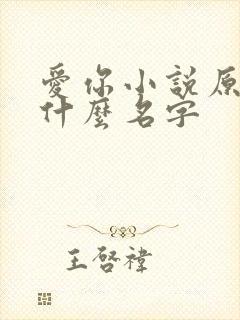 愛你小説原
什麼名字
王啓禕